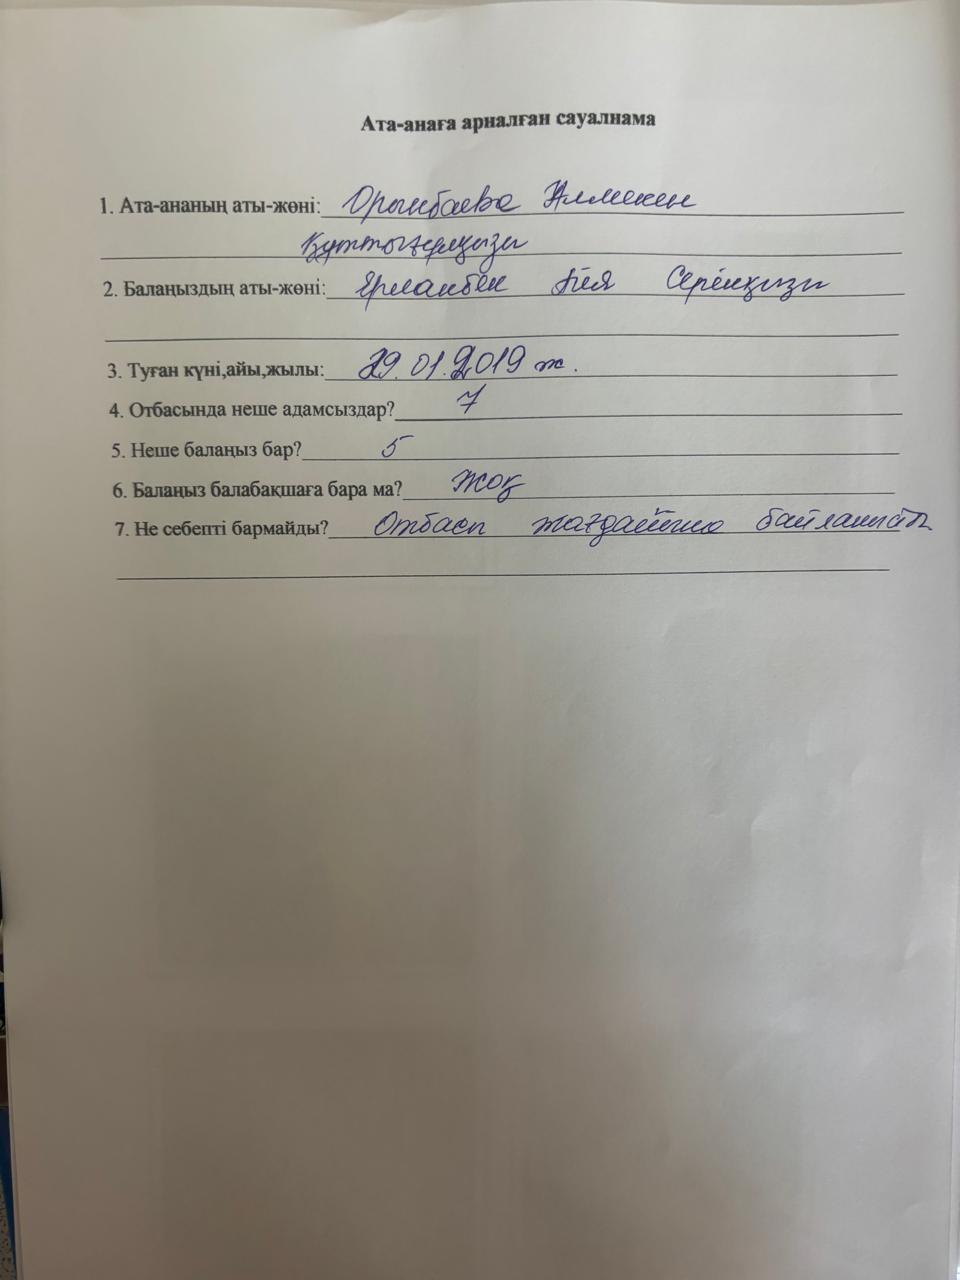 Ата-анаға арналған сауалнама
1. Ата-ананың аты-жөні: Орынбаева

2. Балаңыздың аты-жөні: Ерланбек Серікқызы
3. Туған күні,айы,жылы: 29.01.2019 ж.
4. Отбасында неше адамсыздар? 7
5. Неше балаңыз бар? 5
6. Балаңыз балабақшаға бара ма? жоқ
7. Не себепті бармайды? Отбасы жағдайына байланысты